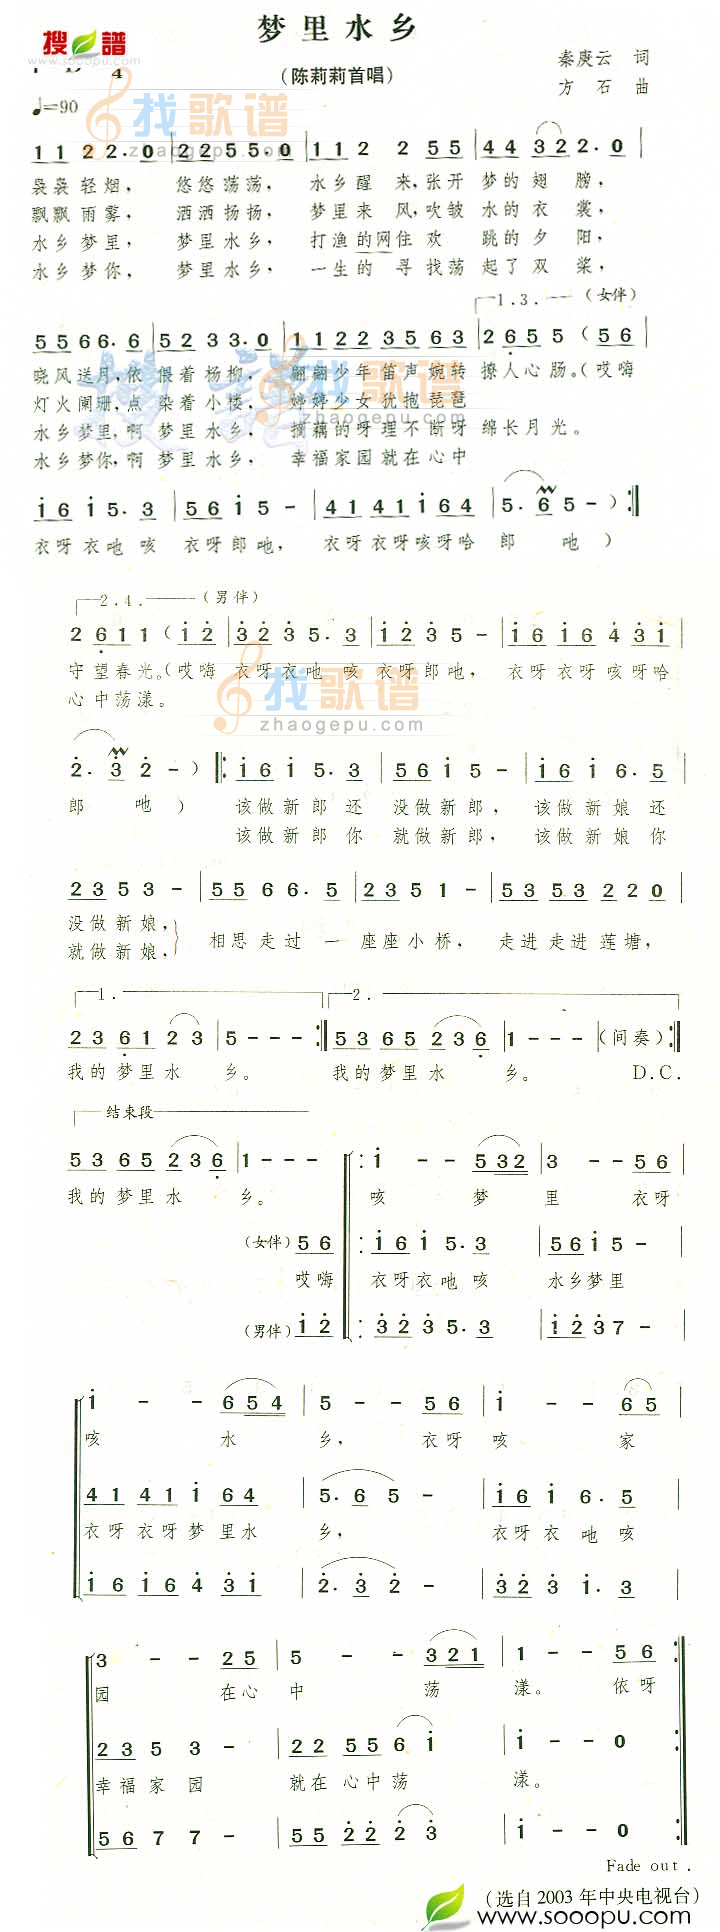 梦里水乡
搜谱
www.sooopu.com
(陈莉莉首唱)
秦庚云 词
方石 曲
♩=90
找歌谱
zhaogepu.com
1 1 2 2·0 | 2 2 5 5·0 | 1 1 2 2 5 5 | 4 4 3 2 2·0 |
袅袅轻烟, 悠悠荡荡, 水乡醒来,张开梦的翅膀,
飘飘雨雾, 洒洒扬扬, 梦里来风,吹皱水的衣裳,
水乡梦里, 梦里水乡, 打渔的网住欢跳的夕阳,
水乡梦你, 梦里水乡, 一生的寻找荡起了双桨,
1.3. (女伴)
5 5 6 6·6 | 5 2 3 3·0 | 1 1 2 2 3 5 6 3 | 2 6 5 5 (5 6 |
晓风送月,依偎着杨柳, 翩翩少年笛声婉转撩人心肠。(哎嗨
灯火阑珊,点染着小楼, 婷婷少女犹抱琵琶
水乡梦里,啊梦里水乡, 摘藕的呀理不断呀绵长月光。
水乡梦你,啊梦里水乡, 幸福家园就在心中
1 6 1 5·3 | 5 6 1 5 - | 4 1 4 1 1 6 4 | 5·6 5 -) :‖
衣呀衣吔咳 衣呀郎吔, 衣呀衣呀咳呀哈 郎 吔)
2.4. (男伴)
2 6 1 1 (1 2 | 3 2 3 5·3 | 1 2 3 5 - | 1 6 1 6 4 3 1 |
守望春光。(哎嗨 衣呀衣吔 咳 衣呀郎吔, 衣呀衣呀咳呀哈
心中荡漾。
找歌谱
zhaogepu.com
2·3 2 -) ‖: 1 6 1 5·3 | 5 6 1 5 - | 1 6 1 6·5 |
郎 吔) 该做新郎还 没做新郎, 该做新娘还
该做新郎你 就做新郎, 该做新娘你
2 3 5 3 - | 5 5 6 6·5 | 2 3 5 1 - | 5 3 5 3 2 2 0 |
没做新娘,
就做新娘, 相思走过一座座小桥, 走进走进莲塘,
1. 2.
2 3 6 1 2 3 | 5 - - - :‖ 5 3 6 5 2 3 6 | 1 - - - (间奏) :‖
我的梦里水 乡。 我的梦里水 乡。 D.C.
结束段
5 3 6 5 2 3 6 | 1 - - - ‖: 1 - - 5 3 2 | 3 - - 5 6 |
我的梦里水 乡。 咳 梦 里 衣呀
(女伴) 5 6 ‖: 1 6 1 5·3 | 5 6 1 5 - |
哎嗨 衣呀衣吔咳 水乡梦里
(男伴) 1 2 ‖: 3 2 3 5·3 | 1 2 3 7 - |
1 - - 6 5 4 | 5 - - 5 6 | 1 - - 6 5 |
咳 水 乡, 衣呀 咳 家
4 1 4 1 1 6 4 | 5·6 5 - | 1 6 1 6·5 |
衣呀衣呀梦里水 乡, 衣呀衣吔咳
1 6 1 6 4 3 1 | 2·3 2 - | 3 2 3 1·3 |
3 - - 2 5 | 5 - - 3 2 1 | 1 - - 5 6 :‖
园 在心 中 荡 漾。 依呀
2 3 5 3 - | 2 2 5 5 6 1 | 1 - - 0 :‖
幸福家园 就在心中荡 漾。
5 6 7 7 - | 5 5 2 2 2 3 | 1 - - 0 :‖
Fade out.
(选自2003年中央电视台)
www.sooopu.com